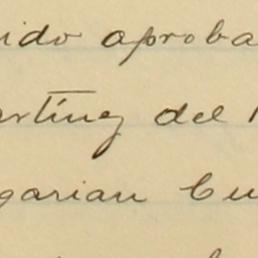 ido aproba
artínez del
garian Cu